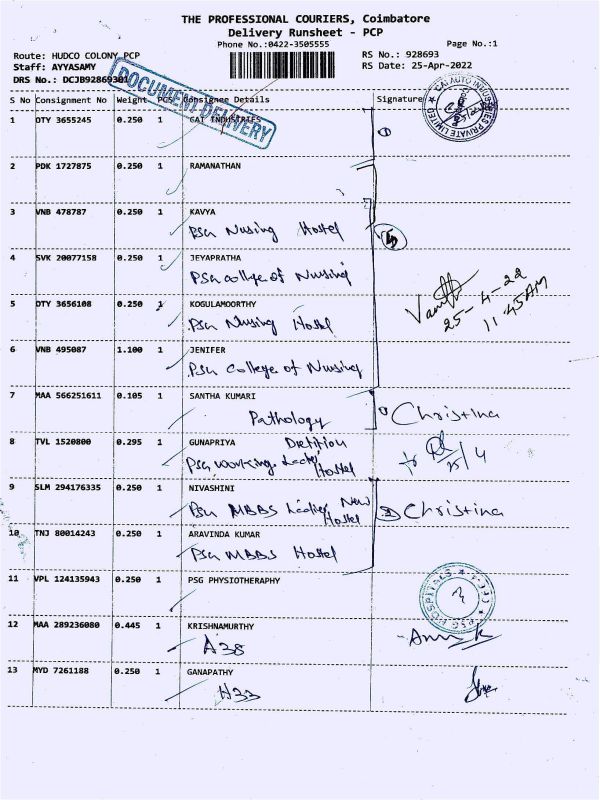 THE PROFESSIONAL COURIERS, Coimbatore
Delivery Runsheet - PCP
Phone No.:0422-3505555
Page No.:1
Route: HUDCO COLONY PCP
RS No.: 928693
Staff: AYYASAMY
RS Date: 25-Apr-2022
DRS No.: DCJB92869301
DOCUMENT DELIVERY
S No Consignment No Weight PCS Consignee Details Signature
1 OTY 3655245 0.250 1 GAI INDUSTRIES
2 PDK 1727875 0.250 1 RAMANATHAN
3 VNB 478787 0.250 1 KAVYA
PSG Nursing Hostel
4 SVK 20077158 0.250 1 JEYAPRATHA
PSG college of Nursing
25-4-22
11:45 AM
5 OTY 3656108 0.250 1 KOGULAMOORTHY
PSG Nursing Hostel
6 VNB 495087 1.100 1 JENIFER
PSG College of Nursing
7 MAA 566251611 0.105 1 SANTHA KUMARI
Pathology Christina
8 TVL 1520800 0.295 1 GUNAPRIYA Dietition
PSG working Ladies Hostel
25/4
9 SLM 294176335 0.250 1 NIVASHINI
PSG MBBS Ladies New Hostel
2 Christina
10 TNJ 80014243 0.250 1 ARAVINDA KUMAR
PSG MBBS Hostel
11 VPL 124135943 0.250 1 PSG PHYSIOTHERAPHY
PSG HOSPITALS
12 MAA 289236080 0.445 1 KRISHNAMURTHY
A38
13 MYD 7261188 0.250 1 GANAPATHY
H33